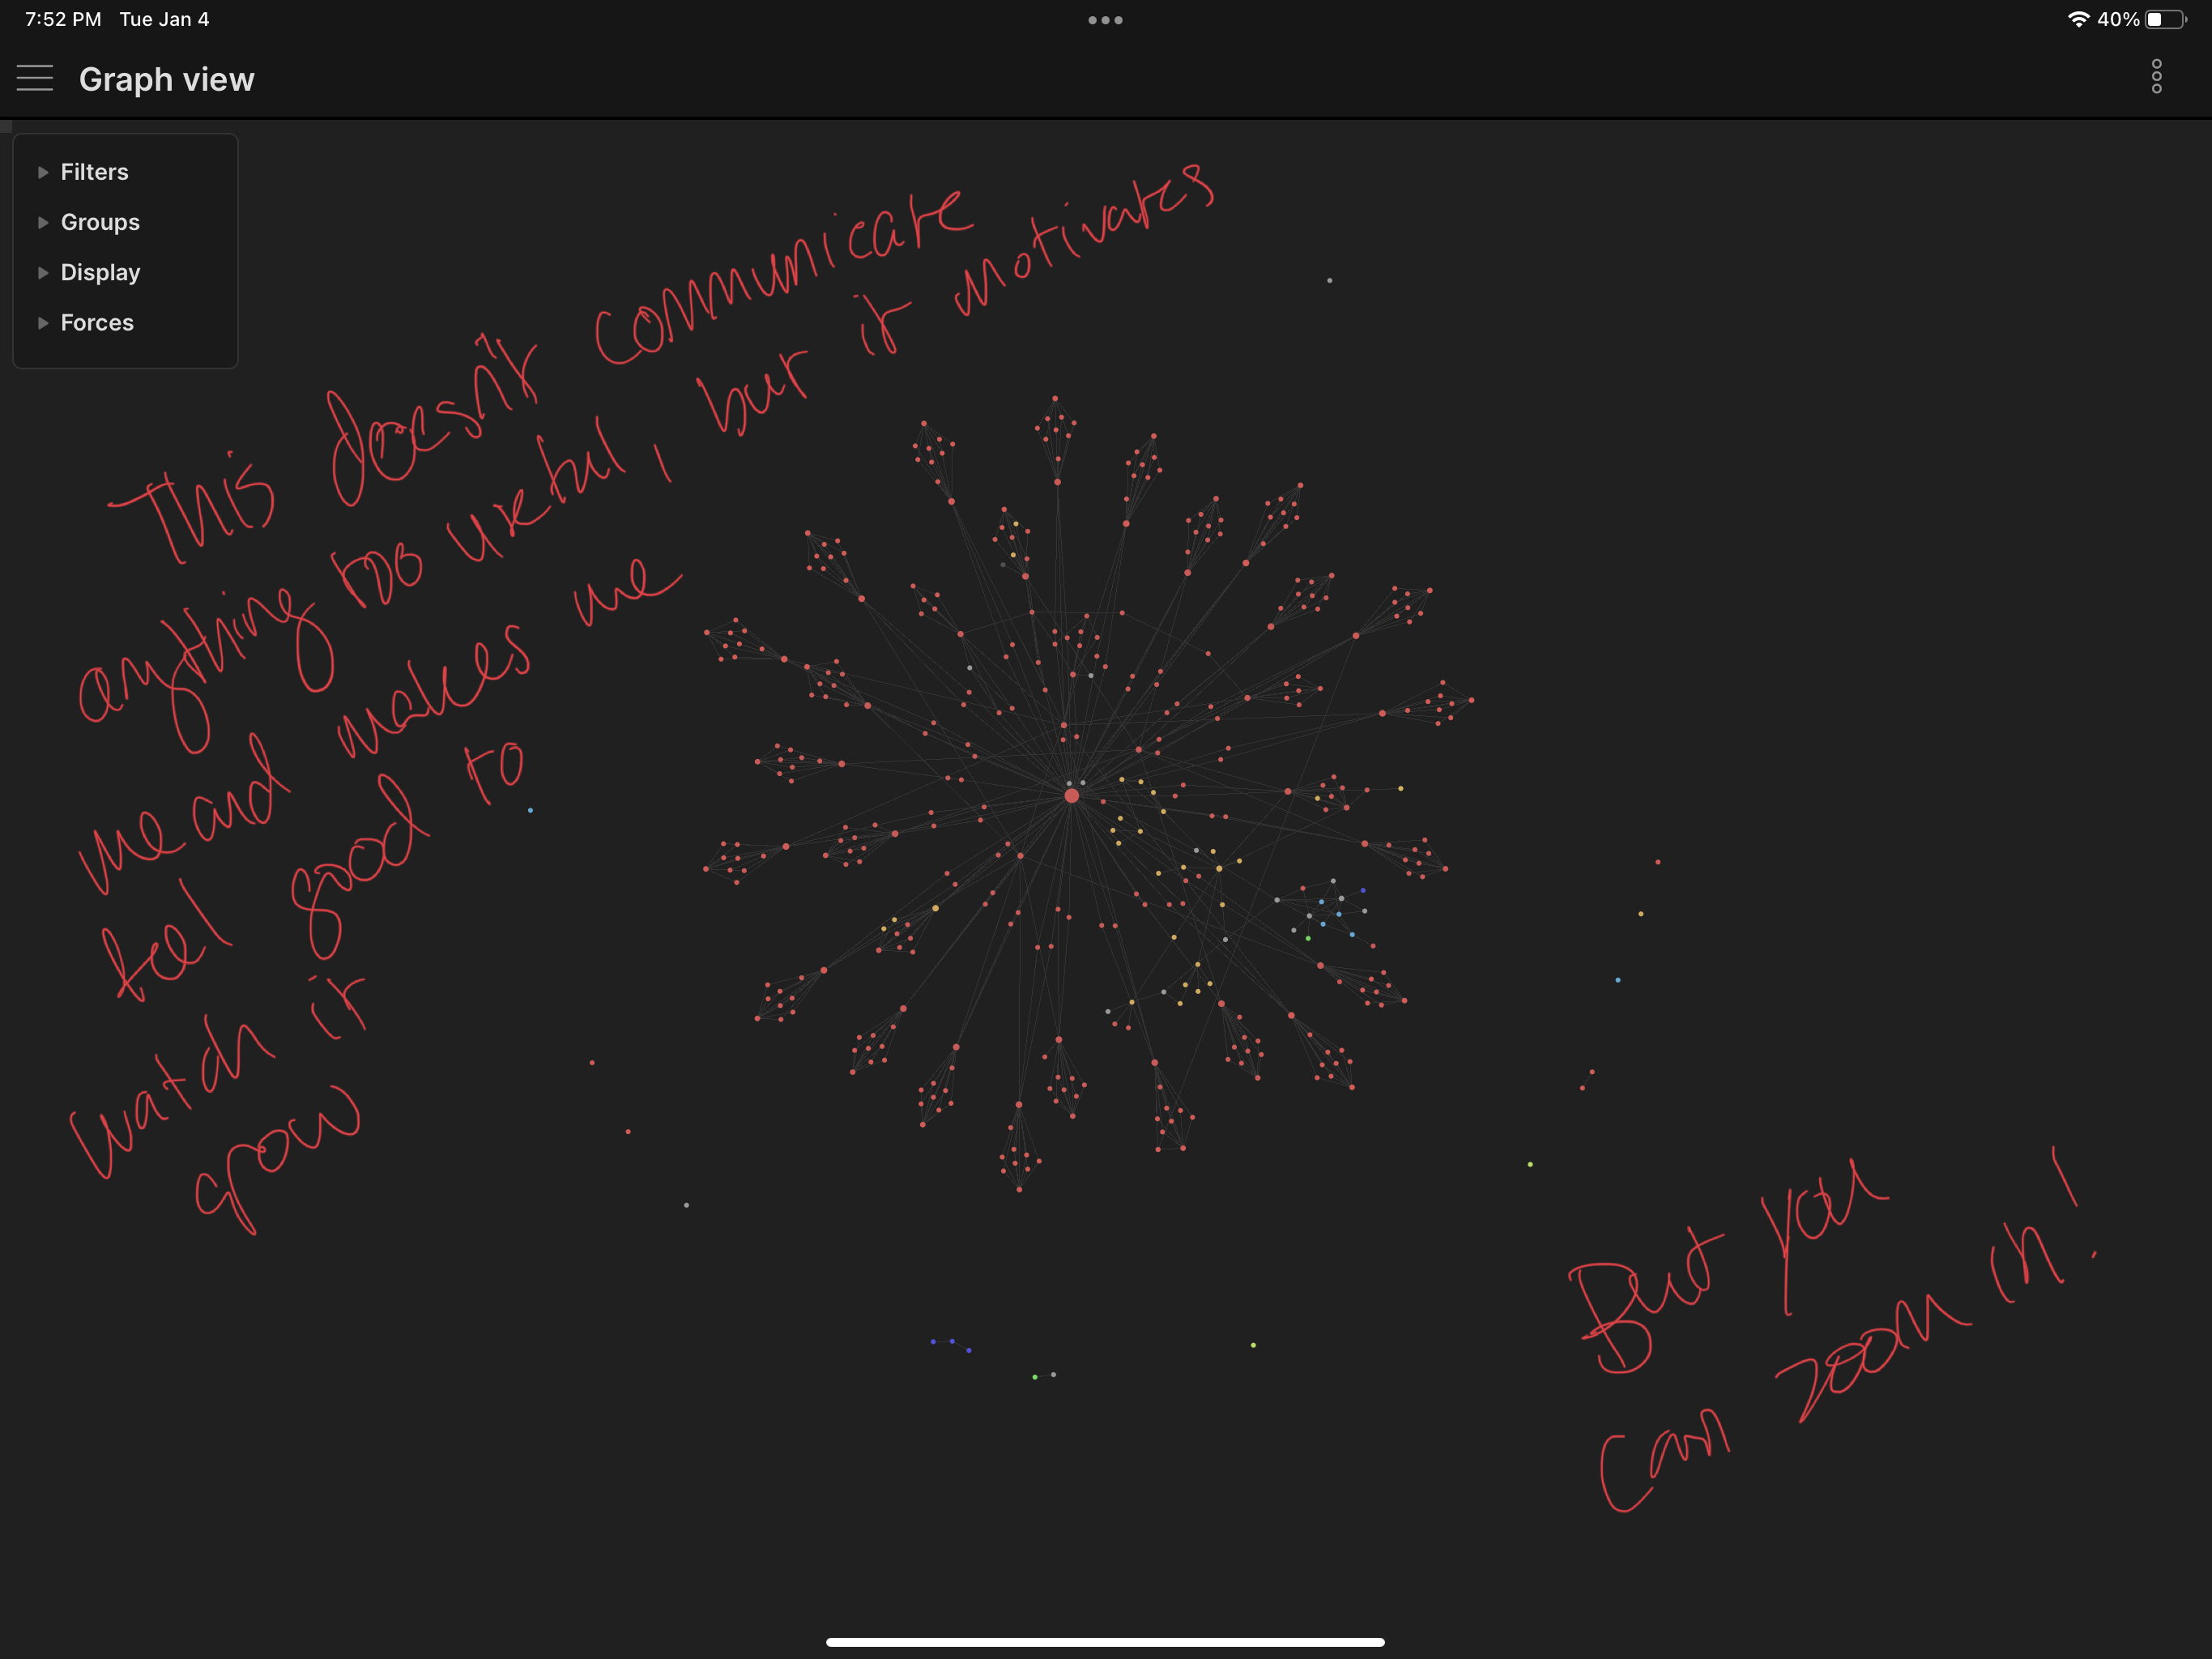 7:52 PM Tue Jan 4
40%
Graph view
Filters
Groups
Display
Forces
This doesn't communicate
anything too useful, but it motivates
me and makes me
feel good to
watch it
grow
But you
can zoom in!